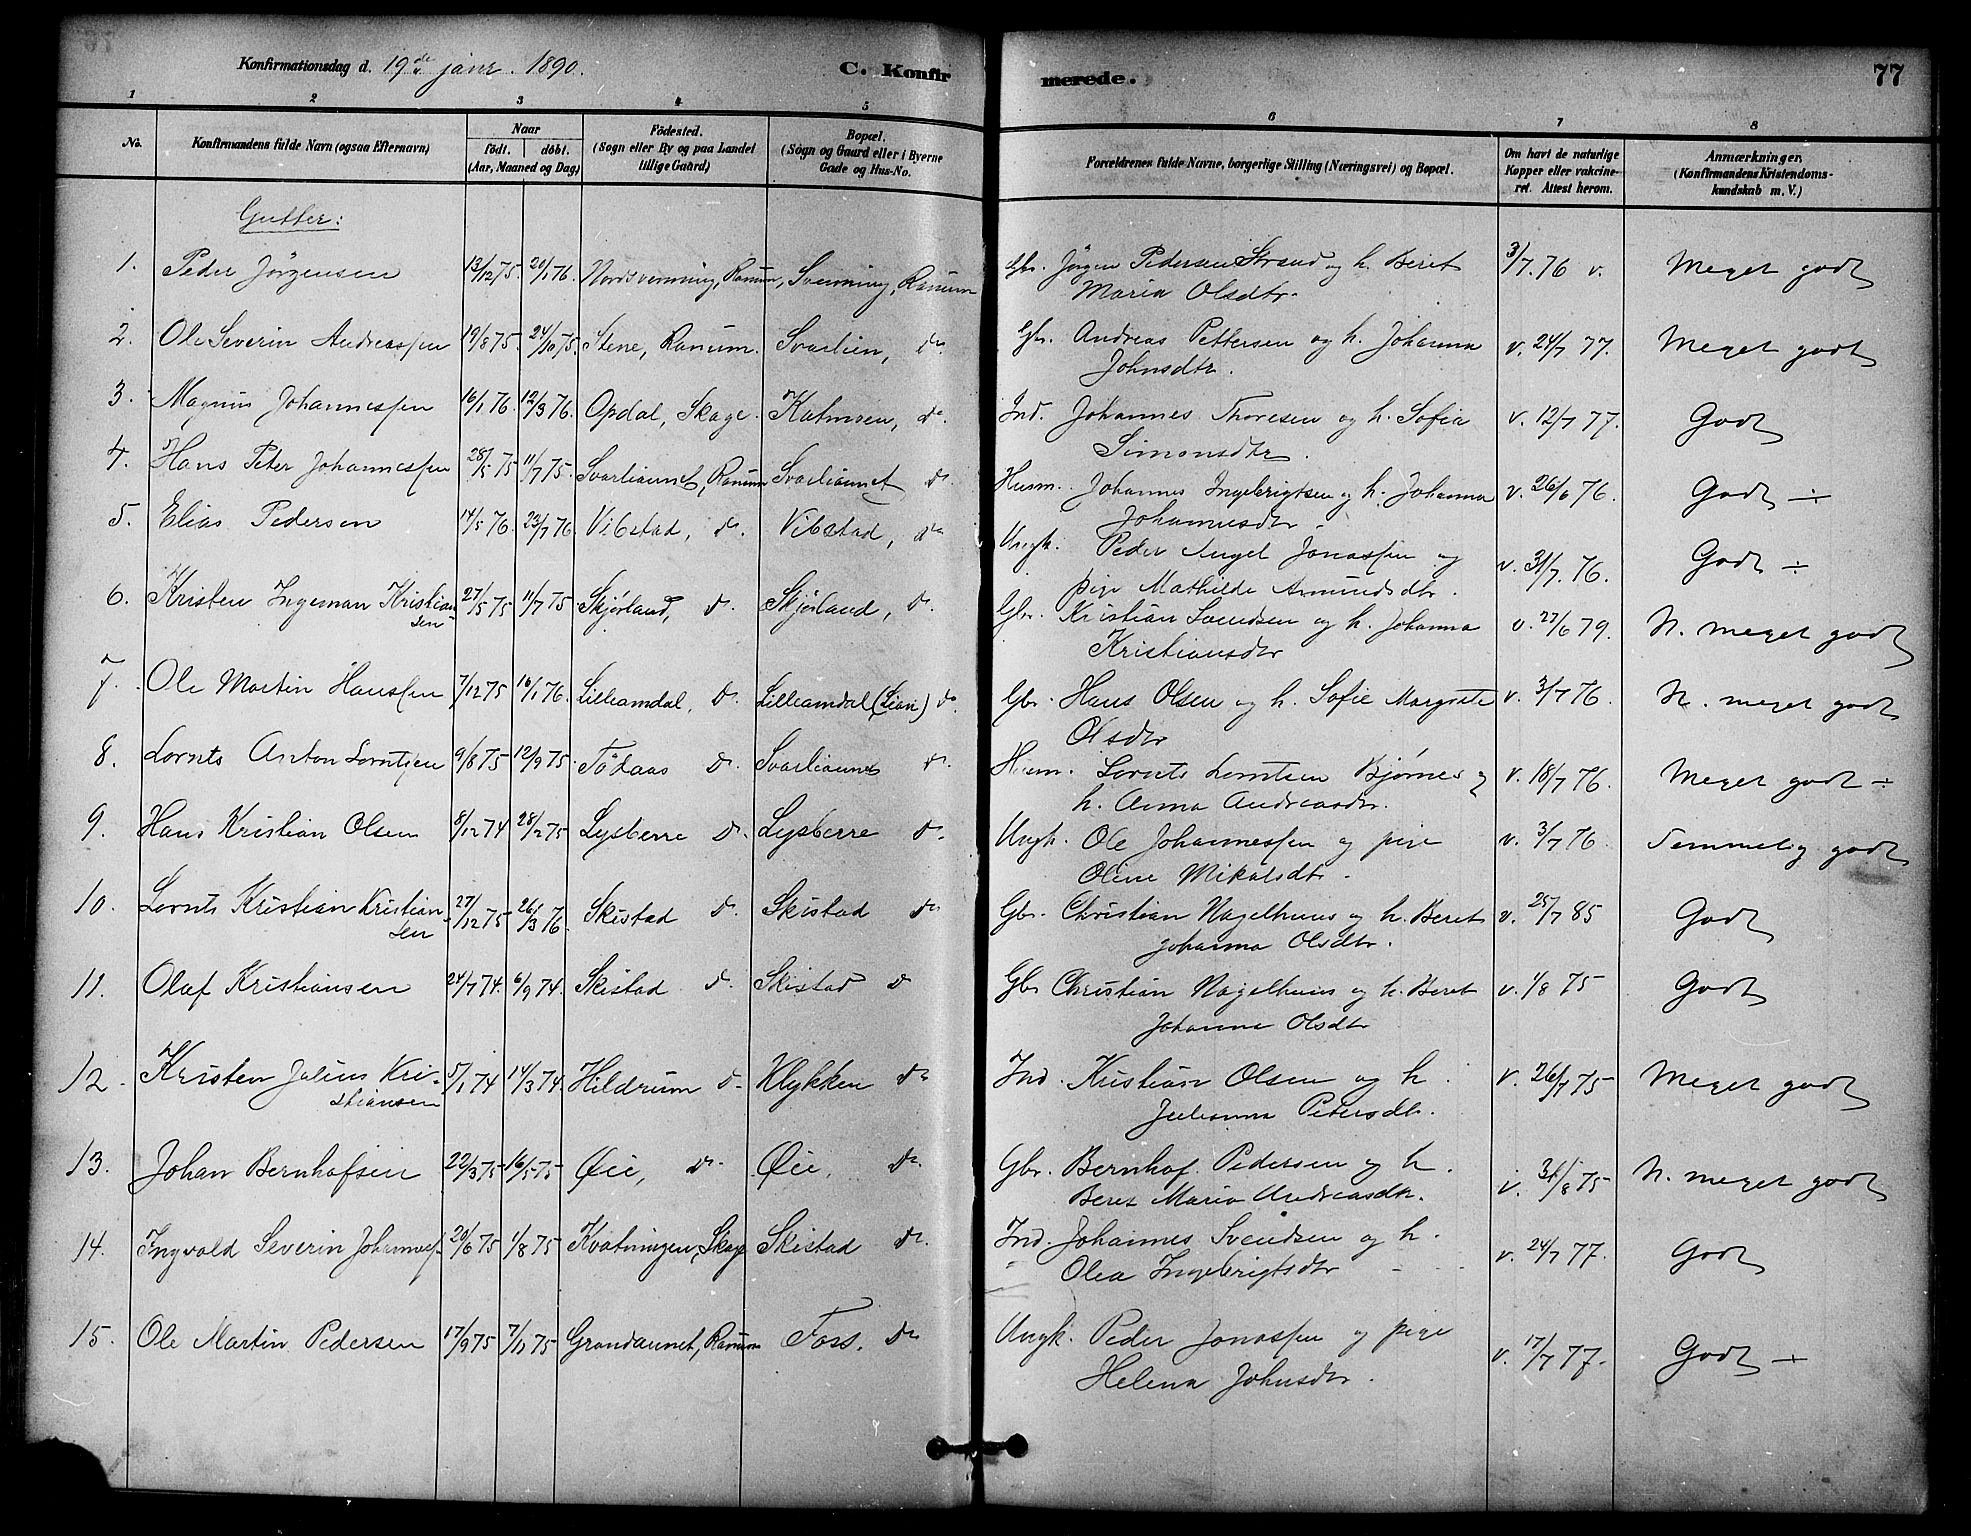 Konfirmationsdag d. 19de janr. 1890. C. Konfir merede. 77
1 2 3 4 5 6 7 8
No. Konfirmandens fulde Navn (ogsaa Efternavn)
Naar
födt. döbt.
(Aar, Maaned og Dag)
Födested.
(Sogn eller By og paa Landet
tillige Gaard)
Bopæl.
(Sogn og Gaard eller i Byerne
Gade og Hus-No.
Forældrenes fulde Navne, borgerlige Stilling (Næringsvei) og Bopæl.
Om havt de naturlige
Kopper eller vakcine-
ret. Attest herom.
Anmærkninger.
(Konfirmandens Kristendoms-
kundskab m. V.)
Gutter:
1. Peder Jörgensen 13/12 75. 20/1 76. Nordsvenning, Ranum, Svenning, Ranum Gbr. Jörgen Pedersen Strand og h. Beret 3/7 76 v. Meget godt
Maria Olsdtr.
2. Ole Severin Andreassen 19/8 75. 24/10 75. Stene, Ranum. Svarlien, do. Gbr. Andreas Pettersen og h. Johanna v. 24/7 77. Meget godt
Johnsdtr.
3. Magnus Johannessen 16/1 76. 12/3 76. Opdal, Skage. Katmoen, do. Ind. Johannes Thoresen og h. Sofia v. 12/7 77. Godt
Simonsdtr.
4. Hans Peter Johannessen 28/5 75 11/7 75. Svarliaunet, Ranum Svarliaunet do. Husm. Johannes Ingebrigtsen og h. Johanna v. 26/6 76. Godt ÷
Johannesdtr.
5. Elias Pedersen 14/5 76. 23/7 76. Vibstad, do. Vibstad, do Ungk. Peder Angel Jonassen og v. 31/7. 76. Godt ÷
pige Mathilde Amundsdtr.
6. Kristen Ingeman Kristian 27/5 75 11/7 75 Skjörland, do. Skjörland, do. Gbr. Kristian Svendsen og h. Johanna v. 27/6 79. N. meget godt
sen
Kristiansdtr
7. Ole Martin Hanssen 7/12 75 16/1 76. Lilleamdal, do. Lilleamdal (Lian) do. Gbr. Hans Olsen og h. Sofie Margrete v. 3/7 76 N. meget godt
Olsdtr
8. Lornts Anton Lorntsen 9/8 75 12/9 75. Födaas do. Svarliaunet do. Husm. Lornts Lorntsen Bjørnes og v. 18/7 76. Meget godt ÷
h. Anna Andreasdtr.
9. Hans Kristian Olsen 8/12 74 28/2 75 Lysberre do. Lysberre do. Ungk. Ole Johannessen og pige v. 3/7 76. Temmelig godt
Oline Mikalsdtr.
10. Lornts Kristian Kristian 27/12 75 26/3 76. Skistad do. Skistad do Gbr. Christian Nagelhuus og h. Beret v. 25/7 85 Godt
sen
Johanna Olsdtr.
11. Olaf Kristiansen 24/7 74. 6/9 74. Skistad do. Skistad do Gbr Christian Nagelhuus og h. Beret v. 1/8 75 Godt
Johanna Olsdtr
12. Kristen Julius Kri- 5/1 74 14/3 74. Hildrum do. Klykken do Ind. Kristian Olsen og h. v. 26/7 75 Meget godt
stiansen
Julianna Petersdtr.
13. Johan Bernhofsen 22/3 75 16/5 75 Øie, do. Øie. do. Gbr. Bernhof Pedersen og h. v. 31/8 75 N. meget godt
Beret Maria Andreasdtr.
14. Ingvald Severin Johannes. 20/6 75 1/8 75 Kvatningen, Skage Skistad do. Ind. Johannes Svendsen og h. v. 24/7 77. Godt
Olea Ingebrigtsdtr
15. Ole Martin Pedersen 17/9 75 7/11 75 Grandaunet, Ranum Foss. do Ungk. Peder Jonassen og pige v. 17/7 77. Godt ÷
Helena Johnsdtr.